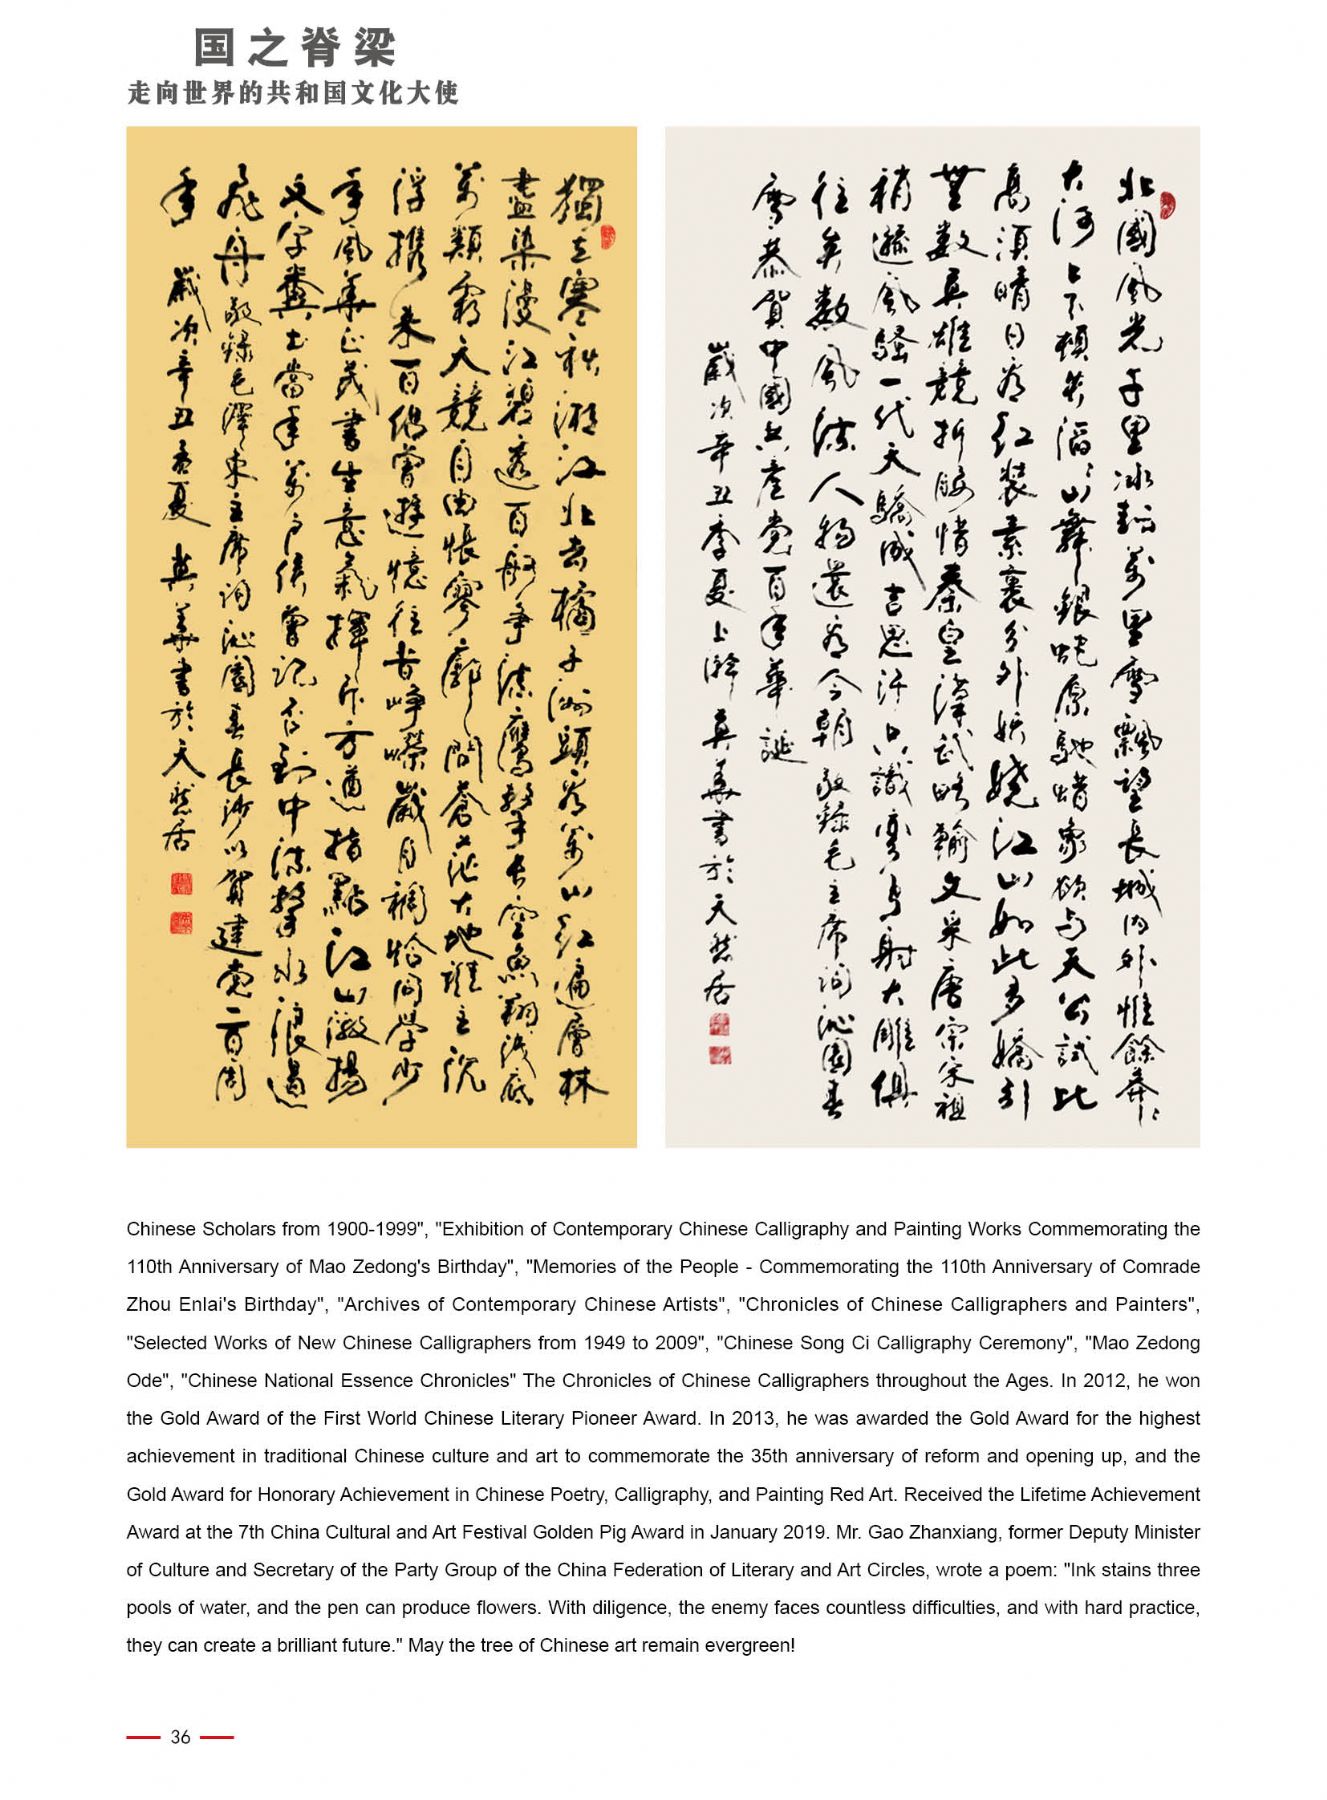 国之脊梁
走向世界的共和国文化大使
獨立寒秋湘江北去橘子洲頭看萬山红遍層林
盡染漫江碧透百舸争流鷹擊长空魚翔浅底
萬類霜天競自由悵寥廓問蒼茫大地谁主沉
浮携来百侣曾遊憶往昔崢嶸歲月稠恰同學少
年風華正茂書生意氣揮斥方遒指點江山激揚
文字糞土當年萬户侯曾记否到中流擊水浪遏
飛舟敬錄毛澤東主席词沁園春長沙以賀建党一百周
年
歲次辛丑夏 英華書於天然居
北國風光千里冰封萬里雪飄望長城内外惟餘莽〻
大河上下頓失滔〻山舞銀蛇原馳蜡象欲与天公試比
高須晴日看红装素裹分外妖嬈江山如此多嬌引
無数英雄競折腰惜秦皇漢武略輸文采唐宗宋祖
稍遜風騷一代天驕成吉思汗只識彎弓射大雕俱
往矣数風流人物還看今朝敬錄毛主席词沁園春
雪恭賀中國共產党百年華誕
歲次辛丑季夏上澣 英華書於天然居
Chinese Scholars from 1900-1999", "Exhibition of Contemporary Chinese Calligraphy and Painting Works Commemorating the
110th Anniversary of Mao Zedong's Birthday", "Memories of the People - Commemorating the 110th Anniversary of Comrade
Zhou Enlai's Birthday", "Archives of Contemporary Chinese Artists", "Chronicles of Chinese Calligraphers and Painters",
"Selected Works of New Chinese Calligraphers from 1949 to 2009", "Chinese Song Ci Calligraphy Ceremony", "Mao Zedong
Ode", "Chinese National Essence Chronicles" The Chronicles of Chinese Calligraphers throughout the Ages. In 2012, he won
the Gold Award of the First World Chinese Literary Pioneer Award. In 2013, he was awarded the Gold Award for the highest
achievement in traditional Chinese culture and art to commemorate the 35th anniversary of reform and opening up, and the
Gold Award for Honorary Achievement in Chinese Poetry, Calligraphy, and Painting Red Art. Received the Lifetime Achievement
Award at the 7th China Cultural and Art Festival Golden Pig Award in January 2019. Mr. Gao Zhanxiang, former Deputy Minister
of Culture and Secretary of the Party Group of the China Federation of Literary and Art Circles, wrote a poem: "Ink stains three
pools of water, and the pen can produce flowers. With diligence, the enemy faces countless difficulties, and with hard practice,
they can create a brilliant future." May the tree of Chinese art remain evergreen!
36